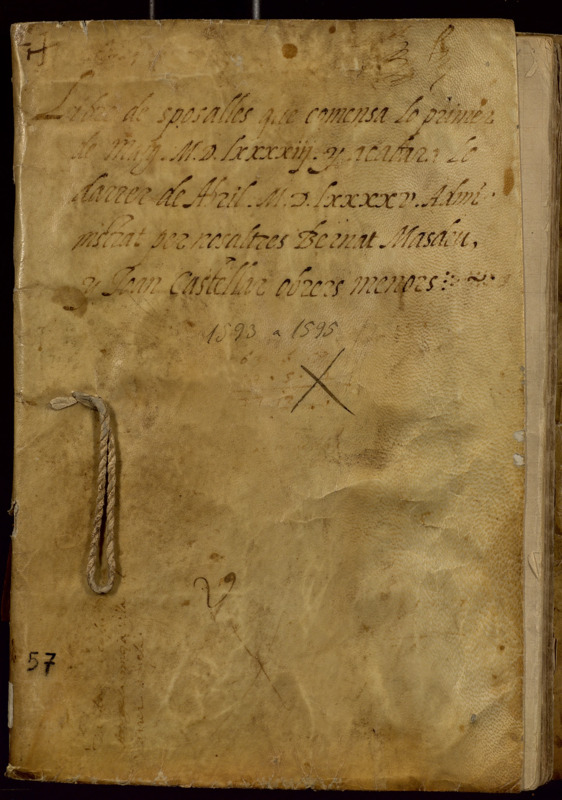 H
Libre de sposalles que comensa lo primer
de Maig M.D. lxxxxiij. y acabara lo
darrer de Abril. M.D. lxxxxv. Admi-
nistrat per nosaltres Bernat Masdeu,
y Joan Castellar obrers menors:
1593 a 1595
X
57